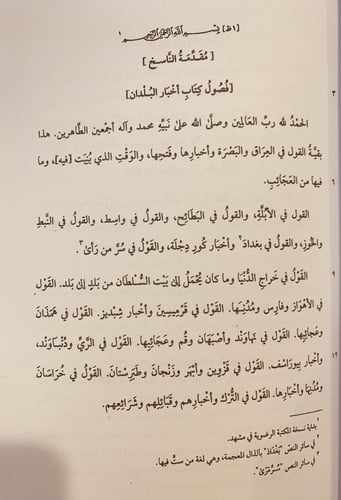 [١ظ] بِسْمِ اللهِ الرَّحْمٰنِ الرَّحِيمِ ١
[مُقَدِّمَةُ النَّاسِخ]
[فُصُولُ كِتَابِ أخْبَارِ البُلْدان]
٣
الحَمْدُ لله ربِّ العالمين وصلَّى اللهُ على نَبيِّه محمد وآله أجمعين الطَّاهرين. هذا
بقيَّةُ القول في العِرَاق والبَصْرَة وأخبارها وفَتحِها، والوَقْتِ الذي بُنِيَت [فيه]، وما
فيها من العَجَائِب.
٦
القولُ في الأبُلَّةِ، والقولُ في البَطَائِح، والقولُ في واسِط، والقولُ في النَّبَطِ
والخُوزِ، والقولُ في بغداذ٢ وأخْبَار كُورِ دِجْلَة، والقَوْلُ في سُرَّ من رَأى٣.
القَوْلُ في خَراج الدُّنْيا وما كان يُحْمَلُ إلى بَيْت السُّلْطان من بَلَدٍ إلى بَلَد. القَوْلُ
٩
في الأهْوَاز وفارس ومُدُنِها. القَوْلُ في قَرْمِيسين وأخْبار شِبْديز. القَوْلُ في هَمَذان
وعجايبها. القَوْلُ في نهاوَنْد وأصْبَهان وقُم وعجايِبها. القَوْلُ في الرَّيّ ودُنْبَاوَنْد،
وأخبار بيوراسْف. القَوْلُ في قَزْوين وأبْهَر وزَنْجان وطَبَرِسْتَان. القَوْلُ في خُرَاسَان
١٢
ومُدُنِها وأخْبارِها. القَوْلُ في التُّرْك وأخْبارِهم وقَبَائِلهم وشَرَائِعهم.
١ بداية نسخة المكتبة الرضوية في مشهد.
٢ في سائر النصّ "بَغْدَاذ" بالذال المعجمة، وهي لغة من ستٍّ فيها.
٣ في سائر النص "سُرَّمَرَّىْ".